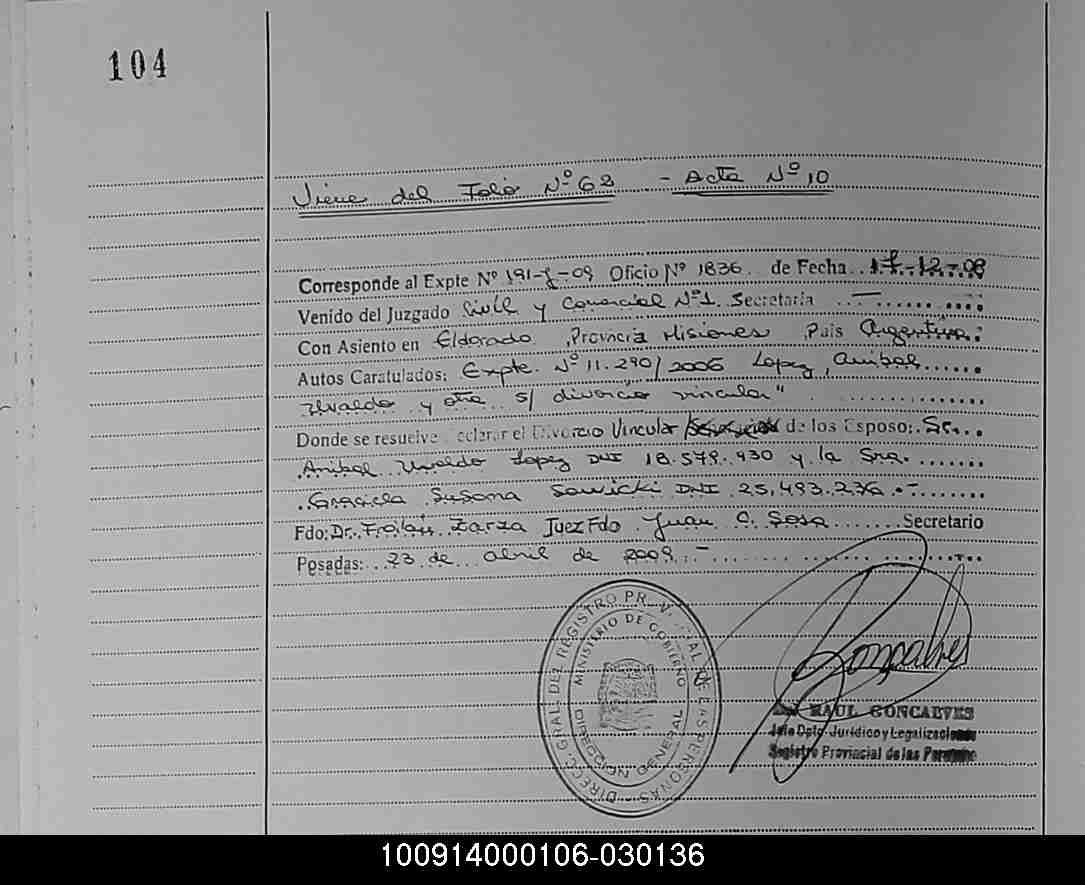 104
Viene del Folio Nº 68 - Acta Nº 10
Corresponde al Expte Nº 191-J-09 Oficio Nº 1836 de Fecha 17-12-08
Venido del Juzgado Civil y Comercial Nº 1. Secretaria —
Con Asiento en Eldorado, Provincia Misiones País Argentina.
Autos Caratulados: Expte. Nº 11.290/2006 Lopez, Anibal
Uvaldo y otra s/ divorcio vincular"
Donde se resuelve Declarar el Divorcio Vincular de los Esposo: Sr.
Anibal Uvaldo Lopez DNI 18.579.930 y la Sra.
Graciela Susana Sawicki DNI 25.493.236.-
Fdo: Dr. Froilan Zarza Juez Fdo Juan C. Sosa Secretario
Posadas: 23 de abril de 2009.-
DIREC. GRAL. DEL REGISTRO PROVINCIAL DE LAS PERSONAS
MINISTERIO DE GOBIERNO
DIRECCION GENERAL
Goncalves
RAUL GONCALVES
Jefe Dpto. Jurídico y Legalizaciones
Registro Provincial de las Personas
100914000106-030136